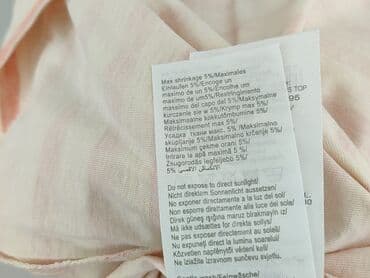 Max shrinkage 5%/Maximales
Einlaufen 5%/Encoge un
maximo de un 5%/Encolhe um
maximo de um5%/Restringimento
massimo del capo del 5%/Maksymalne
kurczenie się w 5%/Krymp max 5%/
Maksimaalne kokkutõmbumine 5%/
Rétrécissement max 5%/
Усадка ткани макс. 5% /Maksimalno
skupljanje 5%/Maksimalno krčenje 5%/
Maksimum çekme oranı 5%/
Intrare la apă maximă 5 %/
Zsugorodás legfeljebb 5%/
S TOP
95
Do not expose to direct sunlight/
Nicht direktem Sonnenlicht aussetzen/
No exponer directamente a la luz del sol/
Non esporre direttamente alla luce del sole/
Direk güneş ışığına maruz bırakmayın iz/
Må ikke udsættes for direkte sollys/
Ne pas exposer directement au soleil/
Nu expuneţi direct la lumina soarelui/
Közvetlen napfénytől védeni kell/
Ne izlažite izravnom sunčevu svjetlu/